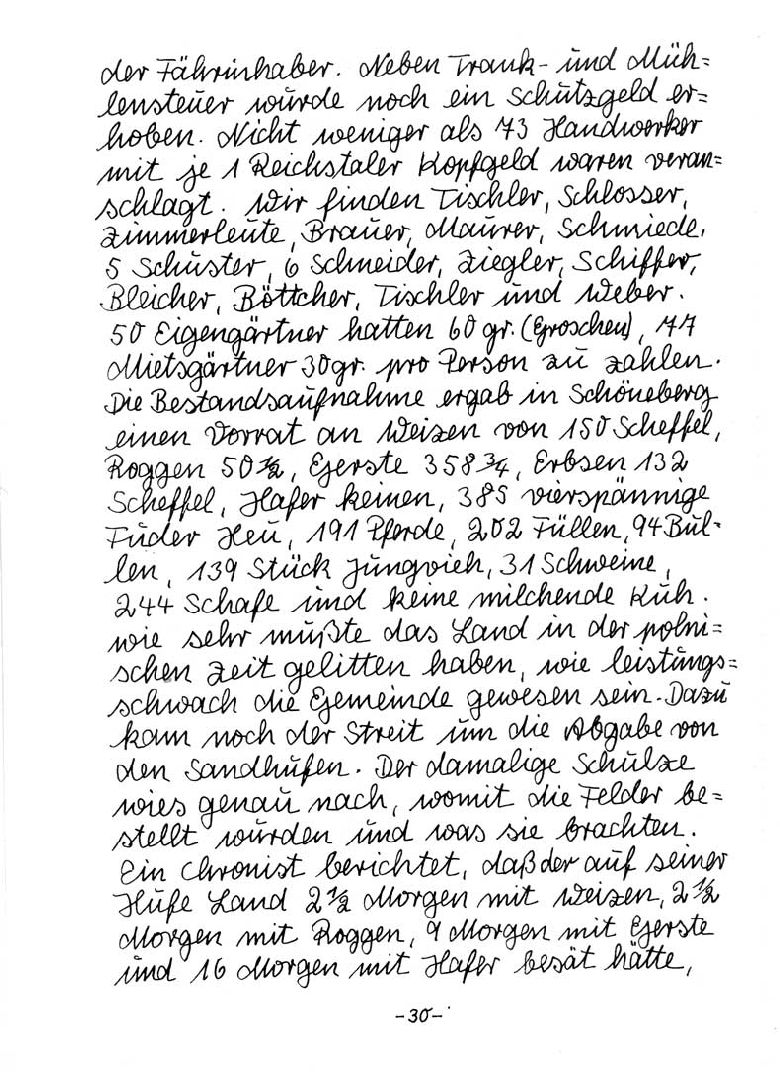 der Fährinhaber. Neben Trank- und Müh=
lensteuer wurde noch ein Schutzgeld er=
hoben. Nicht weniger als 73 Handwerker
mit je 1 Reichstaler Kopfgeld waren veran=
schlagt. Wir finden Tischler, Schlosser,
Zimmerleute, Brauer, Maurer, Schmiede,
5 Schuster, 6 Schneider, Ziegler, Schiffer,
Bleicher, Böttcher, Tischler und Weber.
50 Eigengärtner hatten 60 gr. (Groschen), 77
Mietsgärtner 30gr. pro Person zu zahlen.
Die Bestandsaufnahme ergab in Schöneberg
einen Vorrat an Weizen von 150 Scheffel,
Roggen 50 ½, Gerste 358 ¾, Erbsen 132
Scheffel, Hafer keinen, 385 vierspännige
Fuder Heu, 191 Pferde, 202 Füllen, 94 Bul-
len, 139 Stück Jungvieh, 31 Schweine,
244 Schafe und keine milchende Kuh.
Wie sehr mußte das Land in der polni=
schen Zeit gelitten haben, wie leistungs=
schwach die Gemeinde gewesen sein. Dazu
kam noch der Streit um die Abgabe von
den Sandhufen. Der damalige Schulze
wies genau nach, womit die Felder be=
stellt wurden und was sie brachten.
Ein Chronist berichtet, daß der auf seiner
Hufe Land 2 ½ Morgen mit Weizen, 2 ½
Morgen mit Roggen, 9 Morgen mit Gerste
und 16 Morgen mit Hafer besät hätte,
-30-